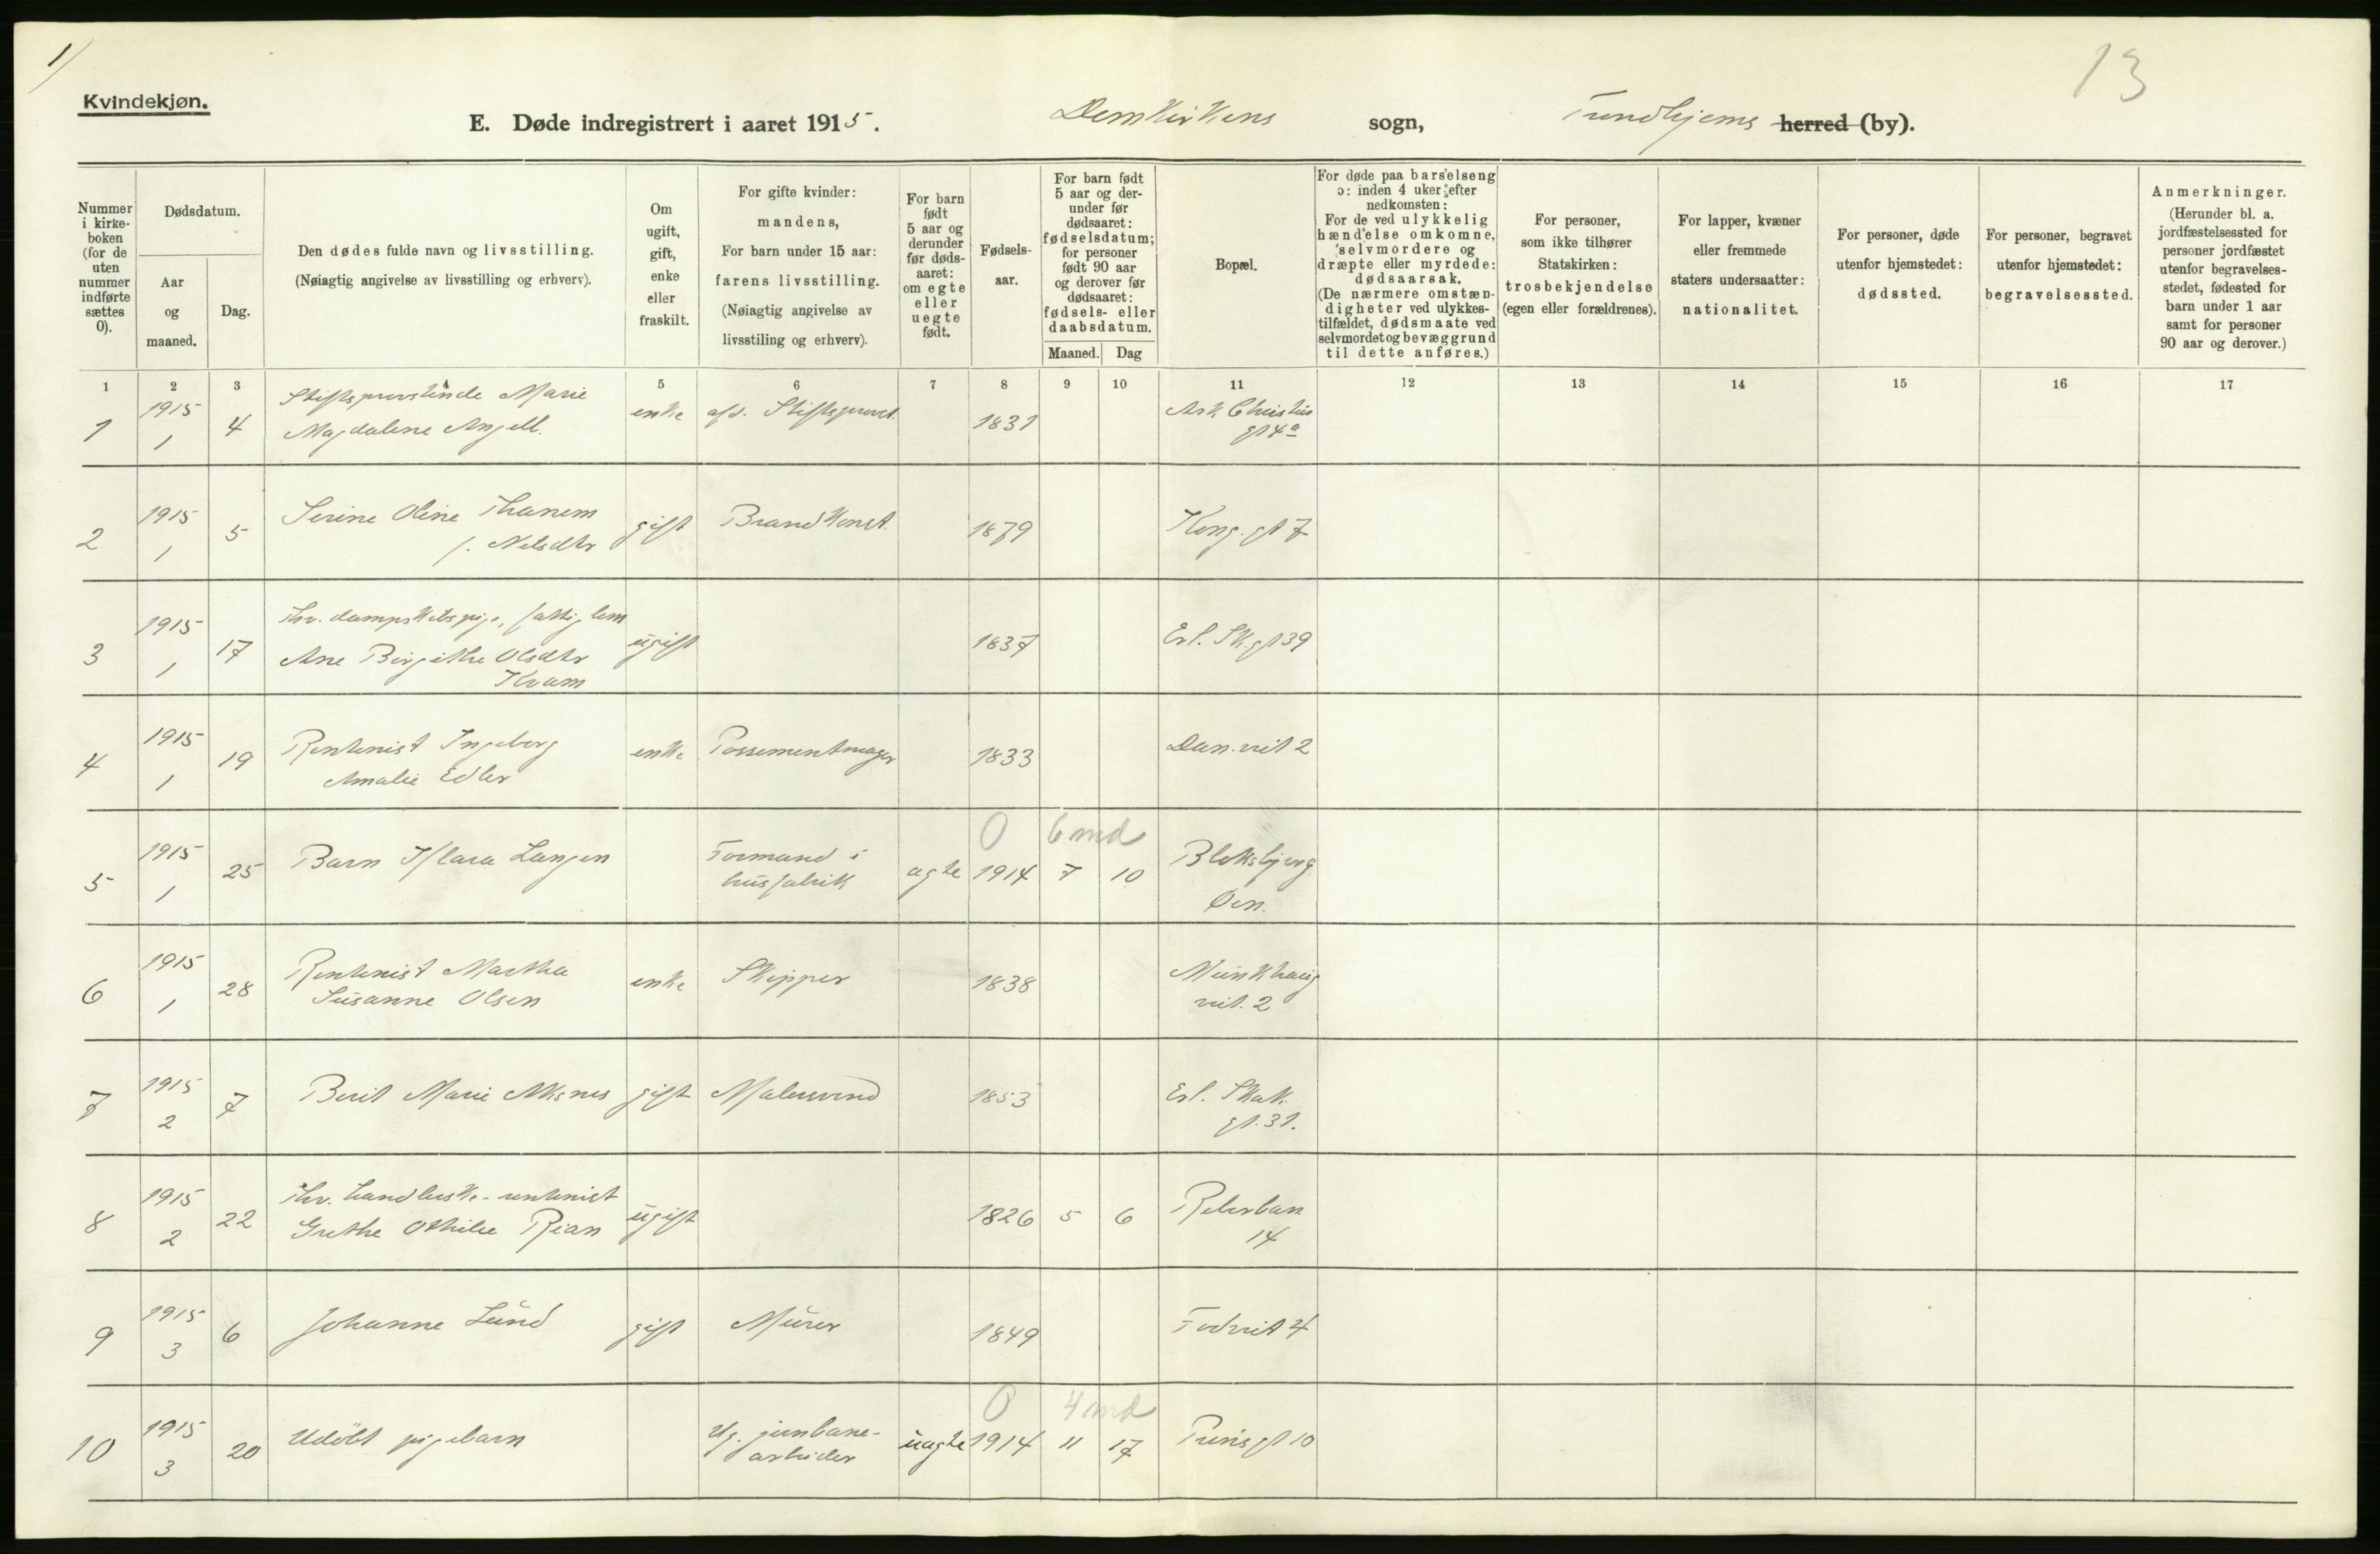 1)
13
Kvindekjøn.
E. Døde indregistrert i aaret 1915. Domkirkens sogn, Trondhjems herred (by).
Nummer i kirke-boken (for de uten nummer indførte sættes 0).
Dødsdatum.
Aar og maaned.
Dag.
Den dødes fulde navn og livsstilling.
(Nøiagtig angivelse av livsstilling og erhverv).
Om ugift, gift, enke eller fraskilt.
For gifte kvinder: mandens,
For barn under 15 aar: farens livsstilling.
(Nøiagtig angivelse av livsstiling og erhverv).
For barn født 5 aar og derunder før døds-aaret: om egte eller uegte født.
Fødsels-aar.
For barn født 5 aar og der-under før dødsaaret: fødselsdatum; for personer født 90 aar og derover før dødsaaret: fødsels- eller daabsdatum.
Maaned. Dag
Bopæl.
For døde paa barselseng ɔ: inden 4 uker efter nedkomsten:
For de ved ulykkelig hændelse omkomne, selvmordere og dræpte eller myrdede: dødsaarsak.
(De nærmere omstæn-digheter ved ulykkes-tilfældet, dødsmaate ved selvmordet og bevæggrund til dette anføres.)
For personer, som ikke tilhører Statskirken: trosbekjendelse (egen eller forældrenes).
For lapper, kvæner eller fremmede staters undersaatter: nationalitet.
For personer, døde utenfor hjemstedet: dødssted.
For personer, begravet utenfor hjemstedet: begravelsessted.
Anmerkninger.
(Herunder bl. a. jordfæstelsessted for personer jordfæstet utenfor begravelses-stedet, fødested for barn under 1 aar samt for personer 90 aar og derover.)
1 2 3 4 5 6 7 8 9 10 11 12 13 14 15 16 17
1 1915 1 4 Stiftsprovstinde Marie Magdalene Angell. enke afd. Stiftsprovst. 1831 Ark. Christies gt 4a
2 1915 1 5 Serine Oline Thanem f. Nilsdtr gift Brandkonst. 1879 Kong. gt 7
3 1915 1 17 fhv. dampskibspige, fattiglem Ane Birgithe Olsdtr Kvam ugift 1837 Erl. Sk. gt 39
4 1915 1 19 Rentenist Ingeborg Amalie Edler enke Possementmager 1833 Dan. veit 2
0 6 md
5 1915 1 25 Barn Klara Langen Formand i brusfabrik egte 1914 7 10 Bleksbjerg Øen.
6 1915 1 28 Rentenist Martha Susanne Olsen enke Skipper 1838 Munkhaug veit. 2
7 1915 2 7 Berit Marie Aksnes gift Malersvend 1853 Erl. Skak. gt. 31.
8 1915 2 22 fhv. handlerske - rentenist Grethe Othilie Rian ugift 1826 5 6 Reberban 14
9 1915 3 6 Johanne Lund gift Murer 1849 Tordveit 4
0 4 md
10 1915 3 20 Udøbt pigebarn Ug. jernbane-arbeider uegte 1914 11 17 gt 10